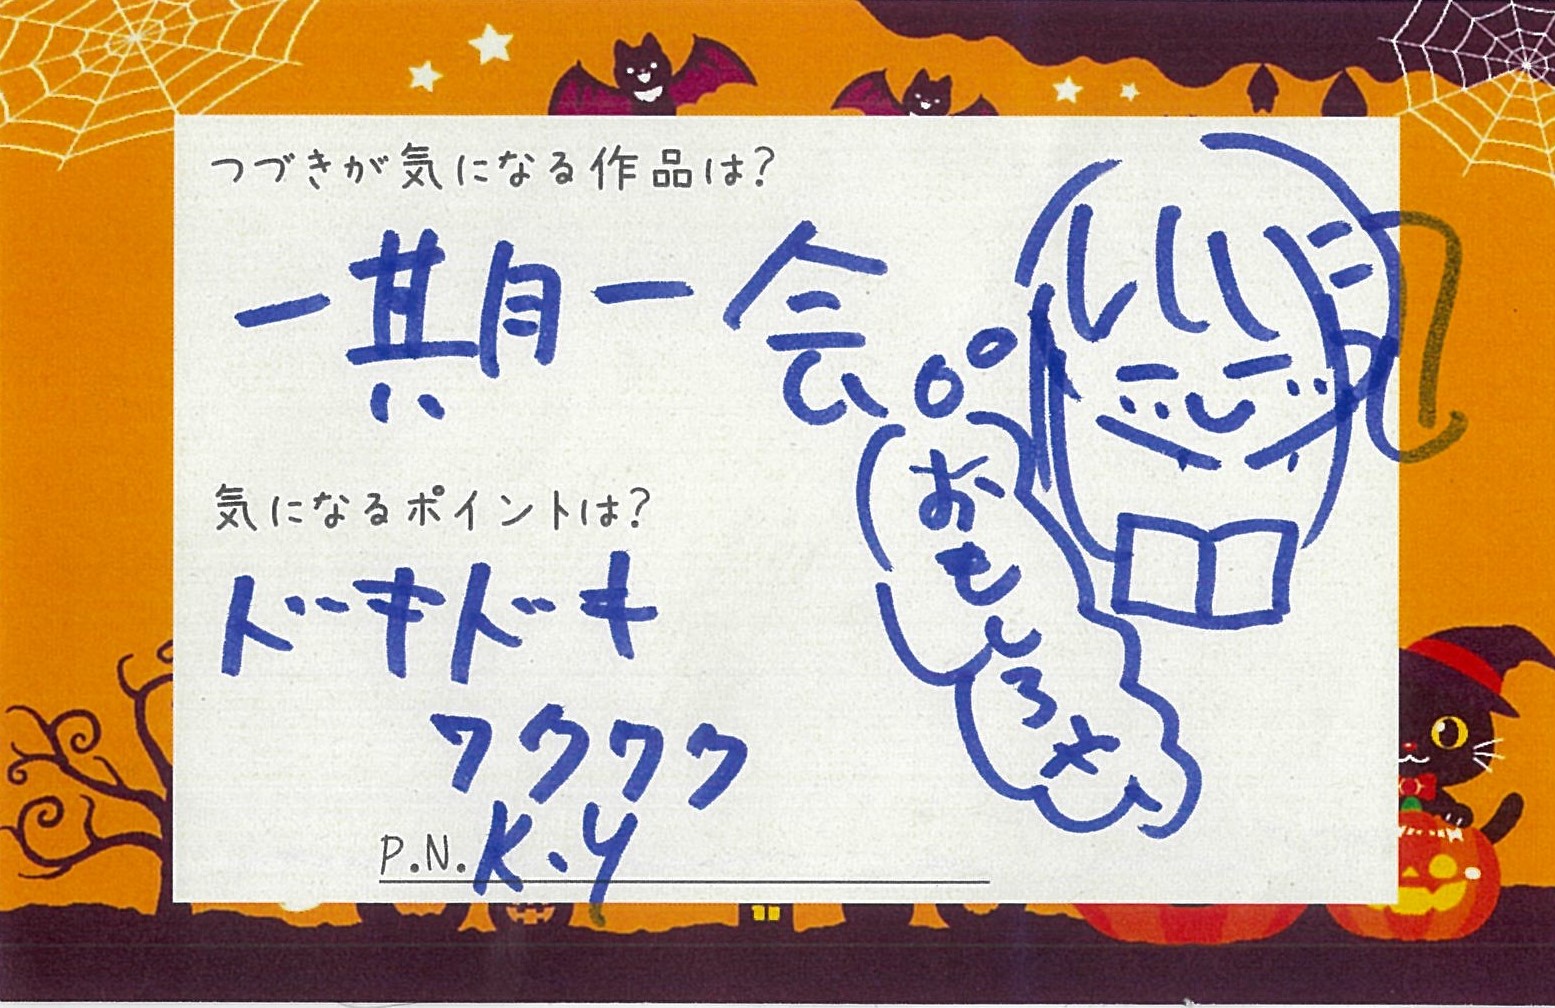 つづきが気になる作品は?
一期一会
気になるポイントは?
ドキドキ
ワクワク
P.N. K.Y
おもしろさ